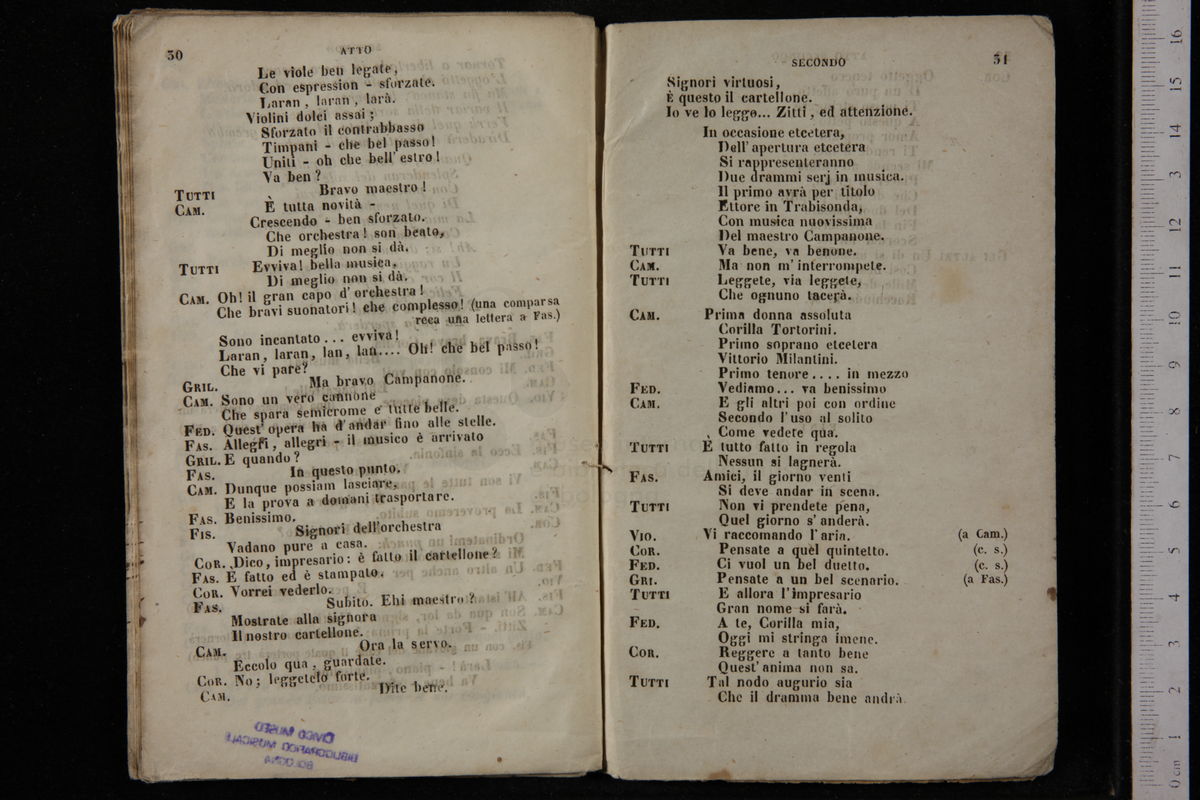 30 ATTO
Le viole ben legate,
Con espression - sforzate.
Laran, laran, larà.
Violini dolci assai;
Sforzato il contrabbasso
Timpani - che bel passo!
Uniti - oh che bell' estro!
Va ben?
TUTTI Bravo maestro!
CAM. È tutta novità -
Crescendo - ben sforzato.
Che orchestra! son beato,
Di meglio non si dà.
TUTTI Evviva! bella musica,
Di meglio non si dà.
CAM. Oh! il gran capo d' orchestra!
Che bravi suonatori! che complesso! (una comparsa
reca una lettera a Fas.)
Sono incantato... evviva!
Laran, laran, lan, lan.... Oh! che bel passo!
Che vi pare?
GRIL. Ma bravo Campanone.
CAM. Sono un vero cannone
Che spara semicrome e tutte belle.
FED. Quest' opera ha d'andar fino alle stelle.
FAS. Allegri, allegri - il musico è arrivato
GRIL. E quando?
FAS. In questo punto.
CAM. Dunque possiam lasciare,
E la prova a domani trasportare.
FAS. Benissimo.
FIS. Signori dell'orchestra
Vadano pure a casa.
COR. Dico, impresario: è fatto il cartellone?
FAS. È fatto ed è stampato.
COR. Vorrei vederlo.
FAS. Subito. Ehi maestro?
Mostrate alla signora
Il nostro cartellone.
CAM. Ora la servo.
Eccolo qua, guardate.
COR. No; leggetelo forte.
CAM. Dite bene.
CIVICO MUSEO
BIBLIOGRAFICO MUSICALE
BOLOGNA
SECONDO 31
Signori virtuosi,
È questo il cartellone.
Io ve lo leggo... Zitti, ed attenzione.
In occasione etcetera,
Dell' apertura etcetera
Si rappresenteranno
Due drammi serj in musica.
Il primo avrà per titolo
Ettore in Trabisonda,
Con musica nuovissima
Del maestro Campanone.
TUTTI Va bene, va benone.
CAM. Ma non m' interrompete.
TUTTI Leggete, via leggete,
Che ognuno tacerà.
CAM. Prima donna assoluta
Corilla Tortorini.
Primo soprano etcetera
Vittorio Milantini.
Primo tenore.... in mezzo
FED. Vediamo... va benissimo
CAM. E gli altri poi con ordine
Secondo l'uso al solito
Come vedete qua.
TUTTI È tutto fatto in regola
Nessun si lagnerà.
FAS. Amici, il giorno venti
Si deve andar in scena.
TUTTI Non vi prendete pena,
Quel giorno s' anderà.
VIO. Vi raccomando l'aria. (a Cam.)
COR. Pensate a quel quintetto. (c. s.)
FED. Ci vuol un bel duetto. (c. s.)
GRI. Pensate a un bel scenario. (a Fas.)
TUTTI E allora l'impresario
Gran nome si farà.
FED. A te, Corilla mia,
Oggi mi stringa imene.
COR. Reggere a tanto bene
Quest' anima non sa.
TUTTI Tal nodo augurio sia
Che il dramma bene andrà.
0 cm 1 2 3 4 5 6 7 8 9 10 11 12 13 14 15 16